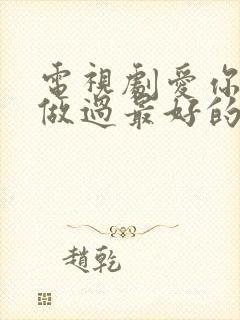 電視劇愛你
做過最好的
趙乾